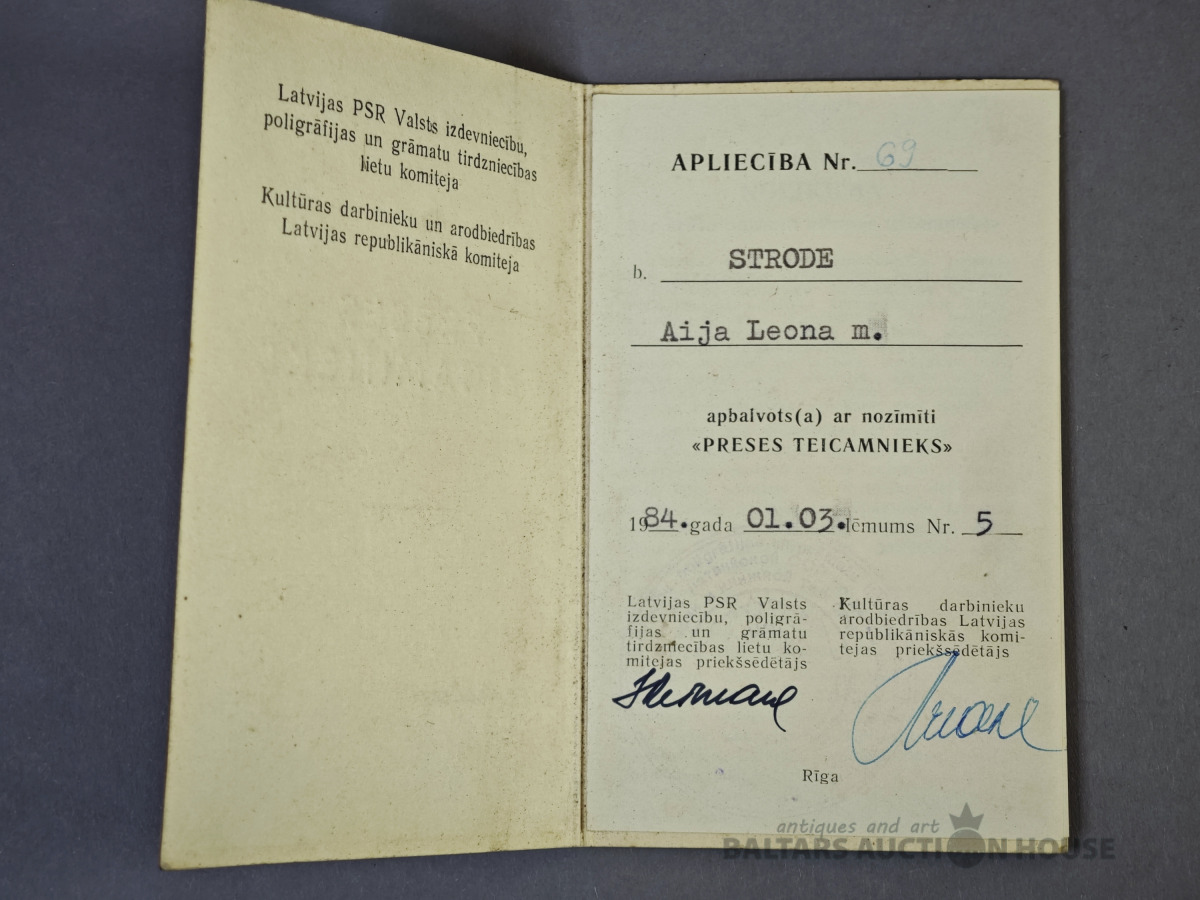 Latvijas PSR Valsts izdevniecību,
poligrāfijas un grāmatu tirdzniecības
lietu komiteja
Kultūras darbinieku un arodbiedrības
Latvijas republikāniskā komiteja
APLIECĪBA Nr. 69
b. STRODE
Aija Leona m.
apbalvots(a) ar nozīmīti
«PRESES TEICAMNIEKS»
1984. gada 01.03. lēmums Nr. 5
Latvijas PSR Valsts
izdevniecību, poligrā-
fijas un grāmatu
tirdzniecības lietu ko-
mitejas priekšsēdētājs
Kultūras darbinieku
arodbiedrības Latvijas
republikāniskās komi-
tejas priekšsēdētājs
Rīga
antiques and art
BALTARS AUCTION HOUSE